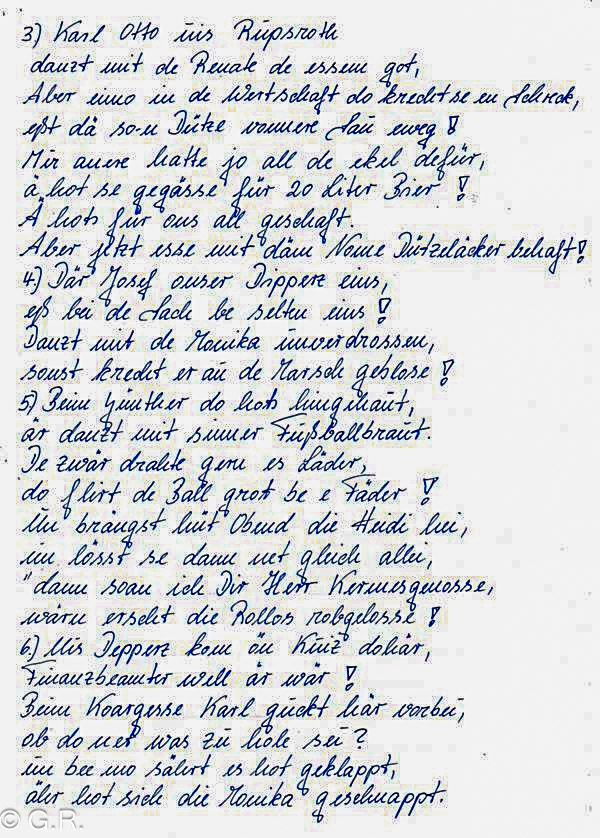 3) Karl Otto üis Rüpsroth
danzt mit de Renate de essem got,
Aber imo in de Wertschaft do krecht se en Schreck,
eßt dä so-n Dütze vonnere Sau eweg!
Mir anere hatte jo all de ekel defür,
ä hot se gegässe für 20 Liter Bier!
Ä hots für ons all geschaft.
Aber jetzt esse mit däm Nome Dützeläcker behaft!
4) Där Josef onser Dipperz eins,
eß bei de Sach be selten eins!
Danzt mit de Monika ünverdrossen,
sonst krecht er au de Marsch geblose!
5) Beim Günther do hots hingehaut,
är danzt mit sinner Fußballbraut.
De zwär drahte gern es Läder,
do flirt de Ball grott be e Fäder!
Un brängst hüt Obend die Heidi hei,
ün lösst se dann net gleich allei,
"dann soan ich Dir Herr Kermesgenosse,
wärn erscht die Rollos robgelosse!
6.) Uis Depperz kom ön Künz dohär,
Finanzbeamter well är wär!
Beim Koargesse Karl guckt här vorbei,
ob do net was zu hole sei?
ün bee mo sährt es hot geklappt,
ähr hot sich die Monika geschnappt.
© G.R.